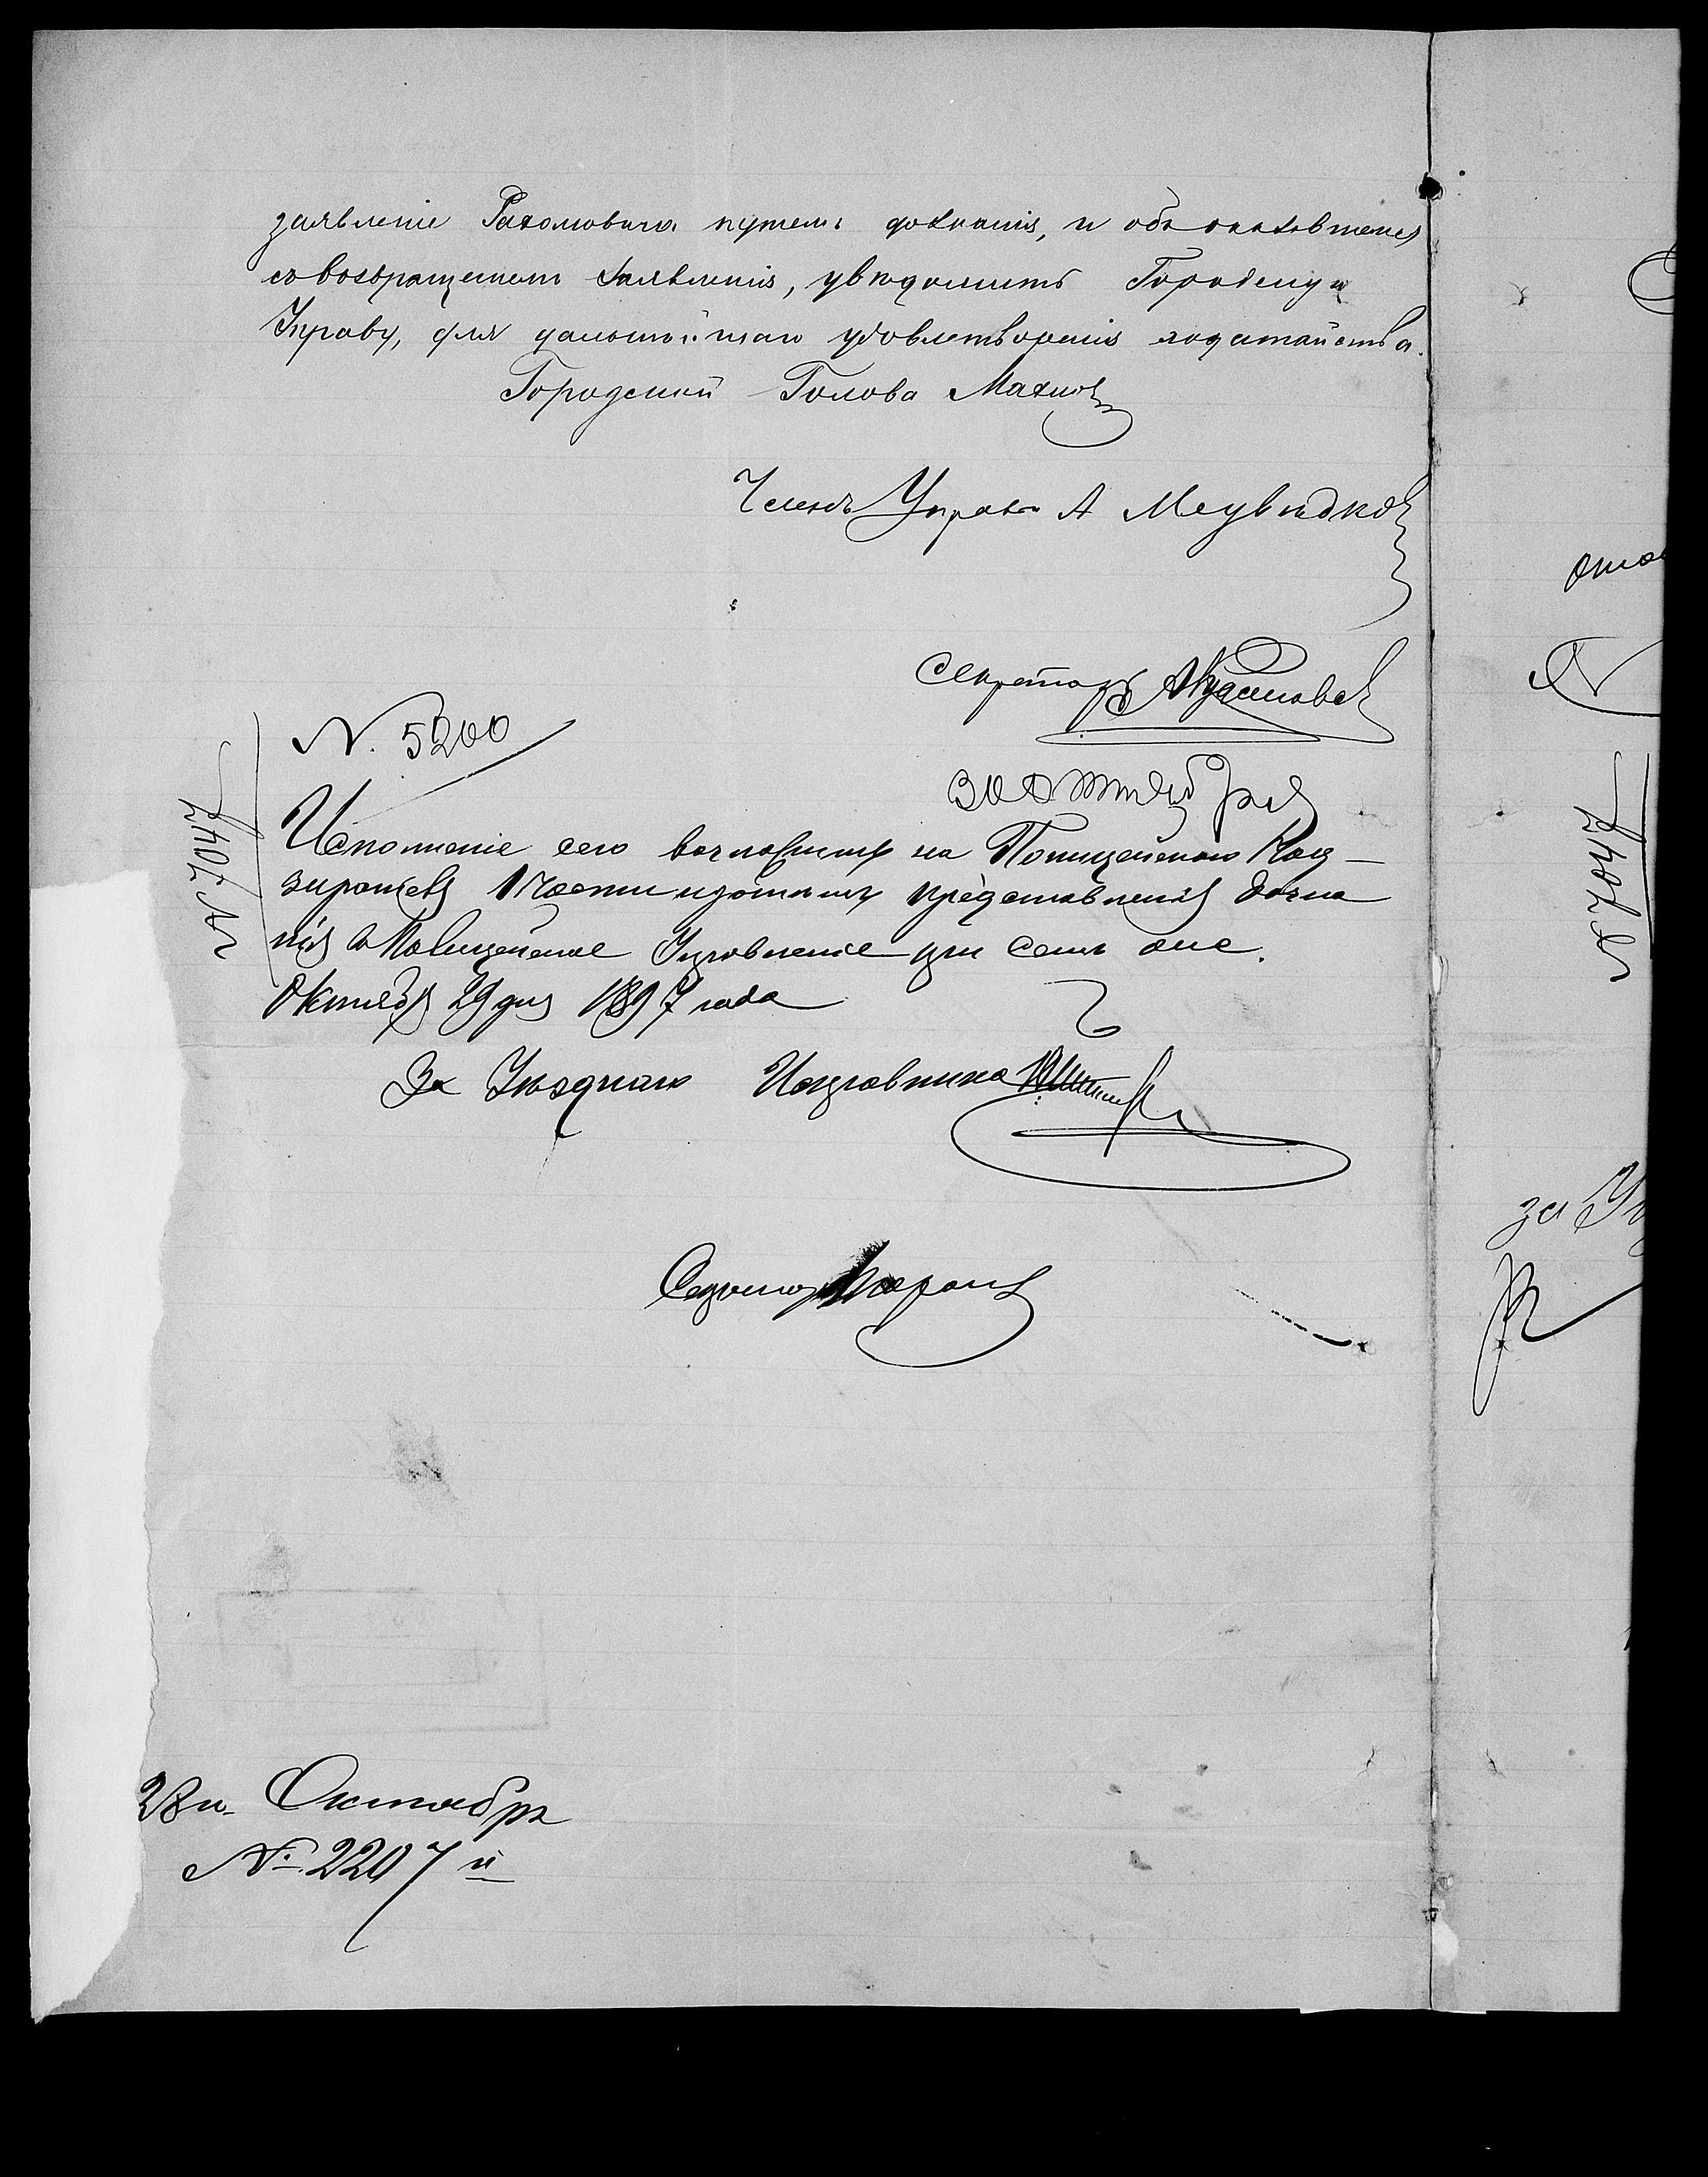 заявленіе Рахомовича путемъ дознанія, и объ оказавшемся
съ возвращеніемъ заявленія, увѣдомить Городскую
Управу, для дальнѣйшаго удовлетворенія ходатайства.
Городской Голова Махно
Членъ Управы А Медвѣдков
Секретарь
N. 5200
30 Октября
Исполненіе сего возложить на Полицейскаго Над-
зирателя 1 части представленія дозна
нія въ Полицейское Управленіе при семъ же.
Октября 29 дня 1897 года
За Уѣзднаго Исправника
Секретарь
28го Октября
№ 2207 й
№ 7047
№ 7047
за